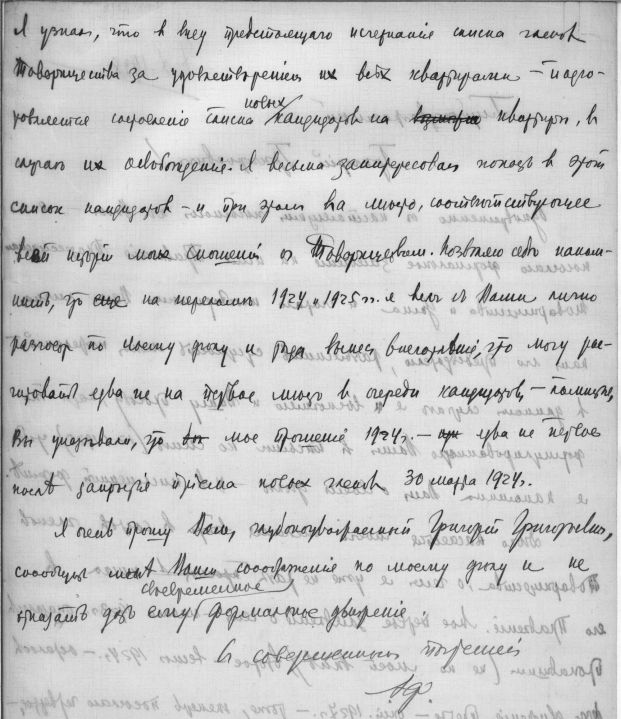 Я узнал, что в виду предстоящаго исчерпанiя списка членов
Товарищества за удовлетворением их всех квартирами — подго-
товляется составленiе списка новых кандидатов на квартиры, в
случае их освобожденiя. Я весьма заинтересован попасть в этот
список кандидатов — и при этом на место, соответствующее
всей исторiи моих сношенiй с Товариществом. Позволяю себе напом-
нить, что еще на переломе 1924 и 1925 гг. я вел с Вами лично
разговор по моему делу и тогда вынес впечатленiе, что могу рас-
читывать едва не на первое место в очереди кандидатов, — помнится,
Вы указывали, что мое прошенiе 1924 г. — едва не первое
после закрытiя прiема новых членов 30 марта 1924 г.
Я очень прошу Вас, глубокоуважаемый Григорiй Григорьевич,
сообщить мне Ваши соображенiя по моему делу и не
отказать дать ему своевременное формальное движенiе.
С совершенным почтенiем